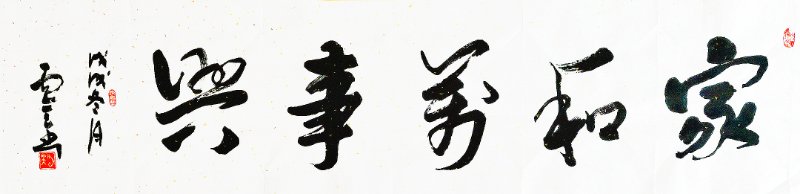 家和萬事興
戊戌冬月
雲書